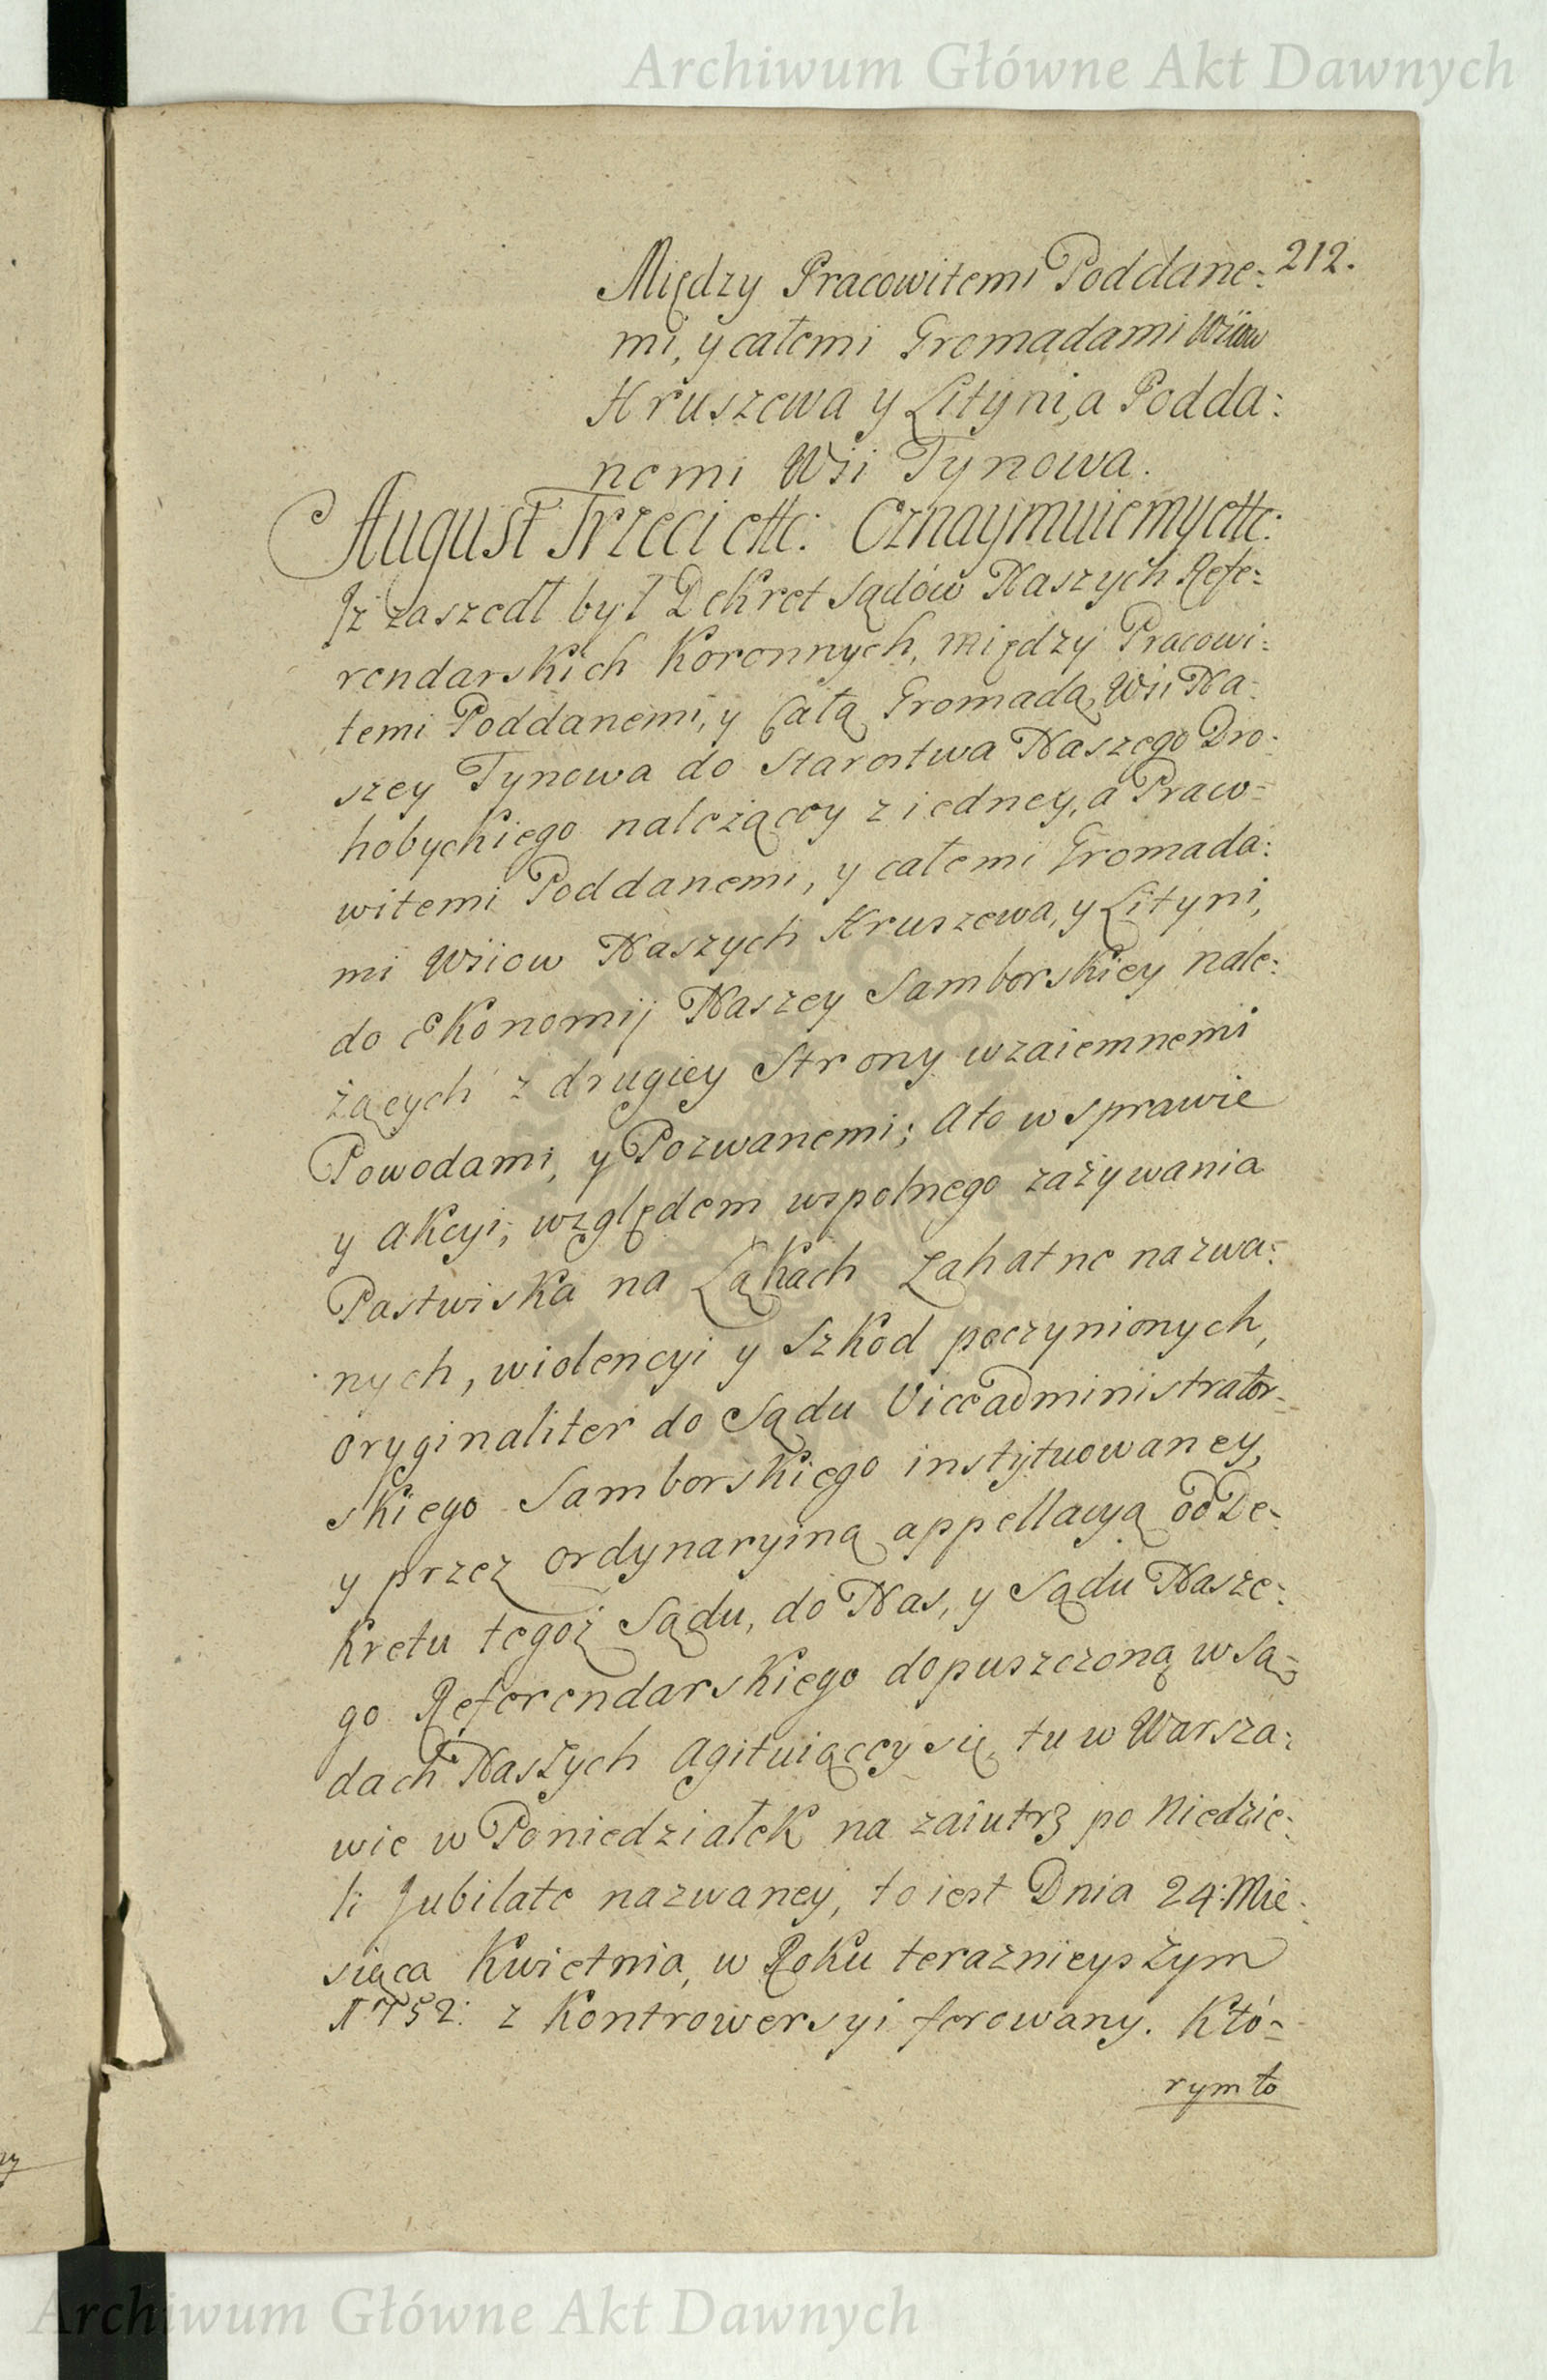 Archiwum Główne Akt Dawnych
212.
Między Pracowitemi Poddane:
mi, y całemi Gromadami Wsiow
Hruszewa y Lityni, a Podda:
nemi Wsi Tynowa.
August Trzeci ettc: Oznaymuiemy ettc:
Iż zaszedł był Dekret Sądów Naszych Refe:
rendarskich Koronnych, między Pracowi:
temi Poddanemi, y Całą Gromadą Wsi Na:
szey Tynowa do Starostwa Naszego Dro:
hobyckiego należącey z iedney, a Praco:
witemi Poddanemi, y całemi Gromada:
mi Wsiow Naszych Hruszewa, y Lityni,
do Ekonomij Naszey Samborskiey nale:
żących z drugiey Strony wzaiemnemi
Powodami, y Pozwanemi; Ato w sprawie
y Akcyi, względem wspolnego zażywania
Pastwiska na Łąkach Zahatne nazwa:
nych, wiolencyi y Szkod poczynionych,
oryginaliter do Sądu Viceadministrator:
skiego Samborskiego instytuowaney,
y przez ordynaryiną appellacyą od De:
kretu tegoż Sądu, do Nas, y Sądu Nasze:
go Referendarskiego dopuszczoną w Są:
dach Naszych agituiącey się, tu w Warsza:
wie w Poniedziałek na zaiutrz po Niedzie:
li Jubilate nazwaney, to iest Dnia 24: Mie:
siąca Kwietnia, w Roku teraznieyszym
1752: z Kontrowersyi ferowany. Któ:
rym to
Archiwum Główne Akt Dawnych